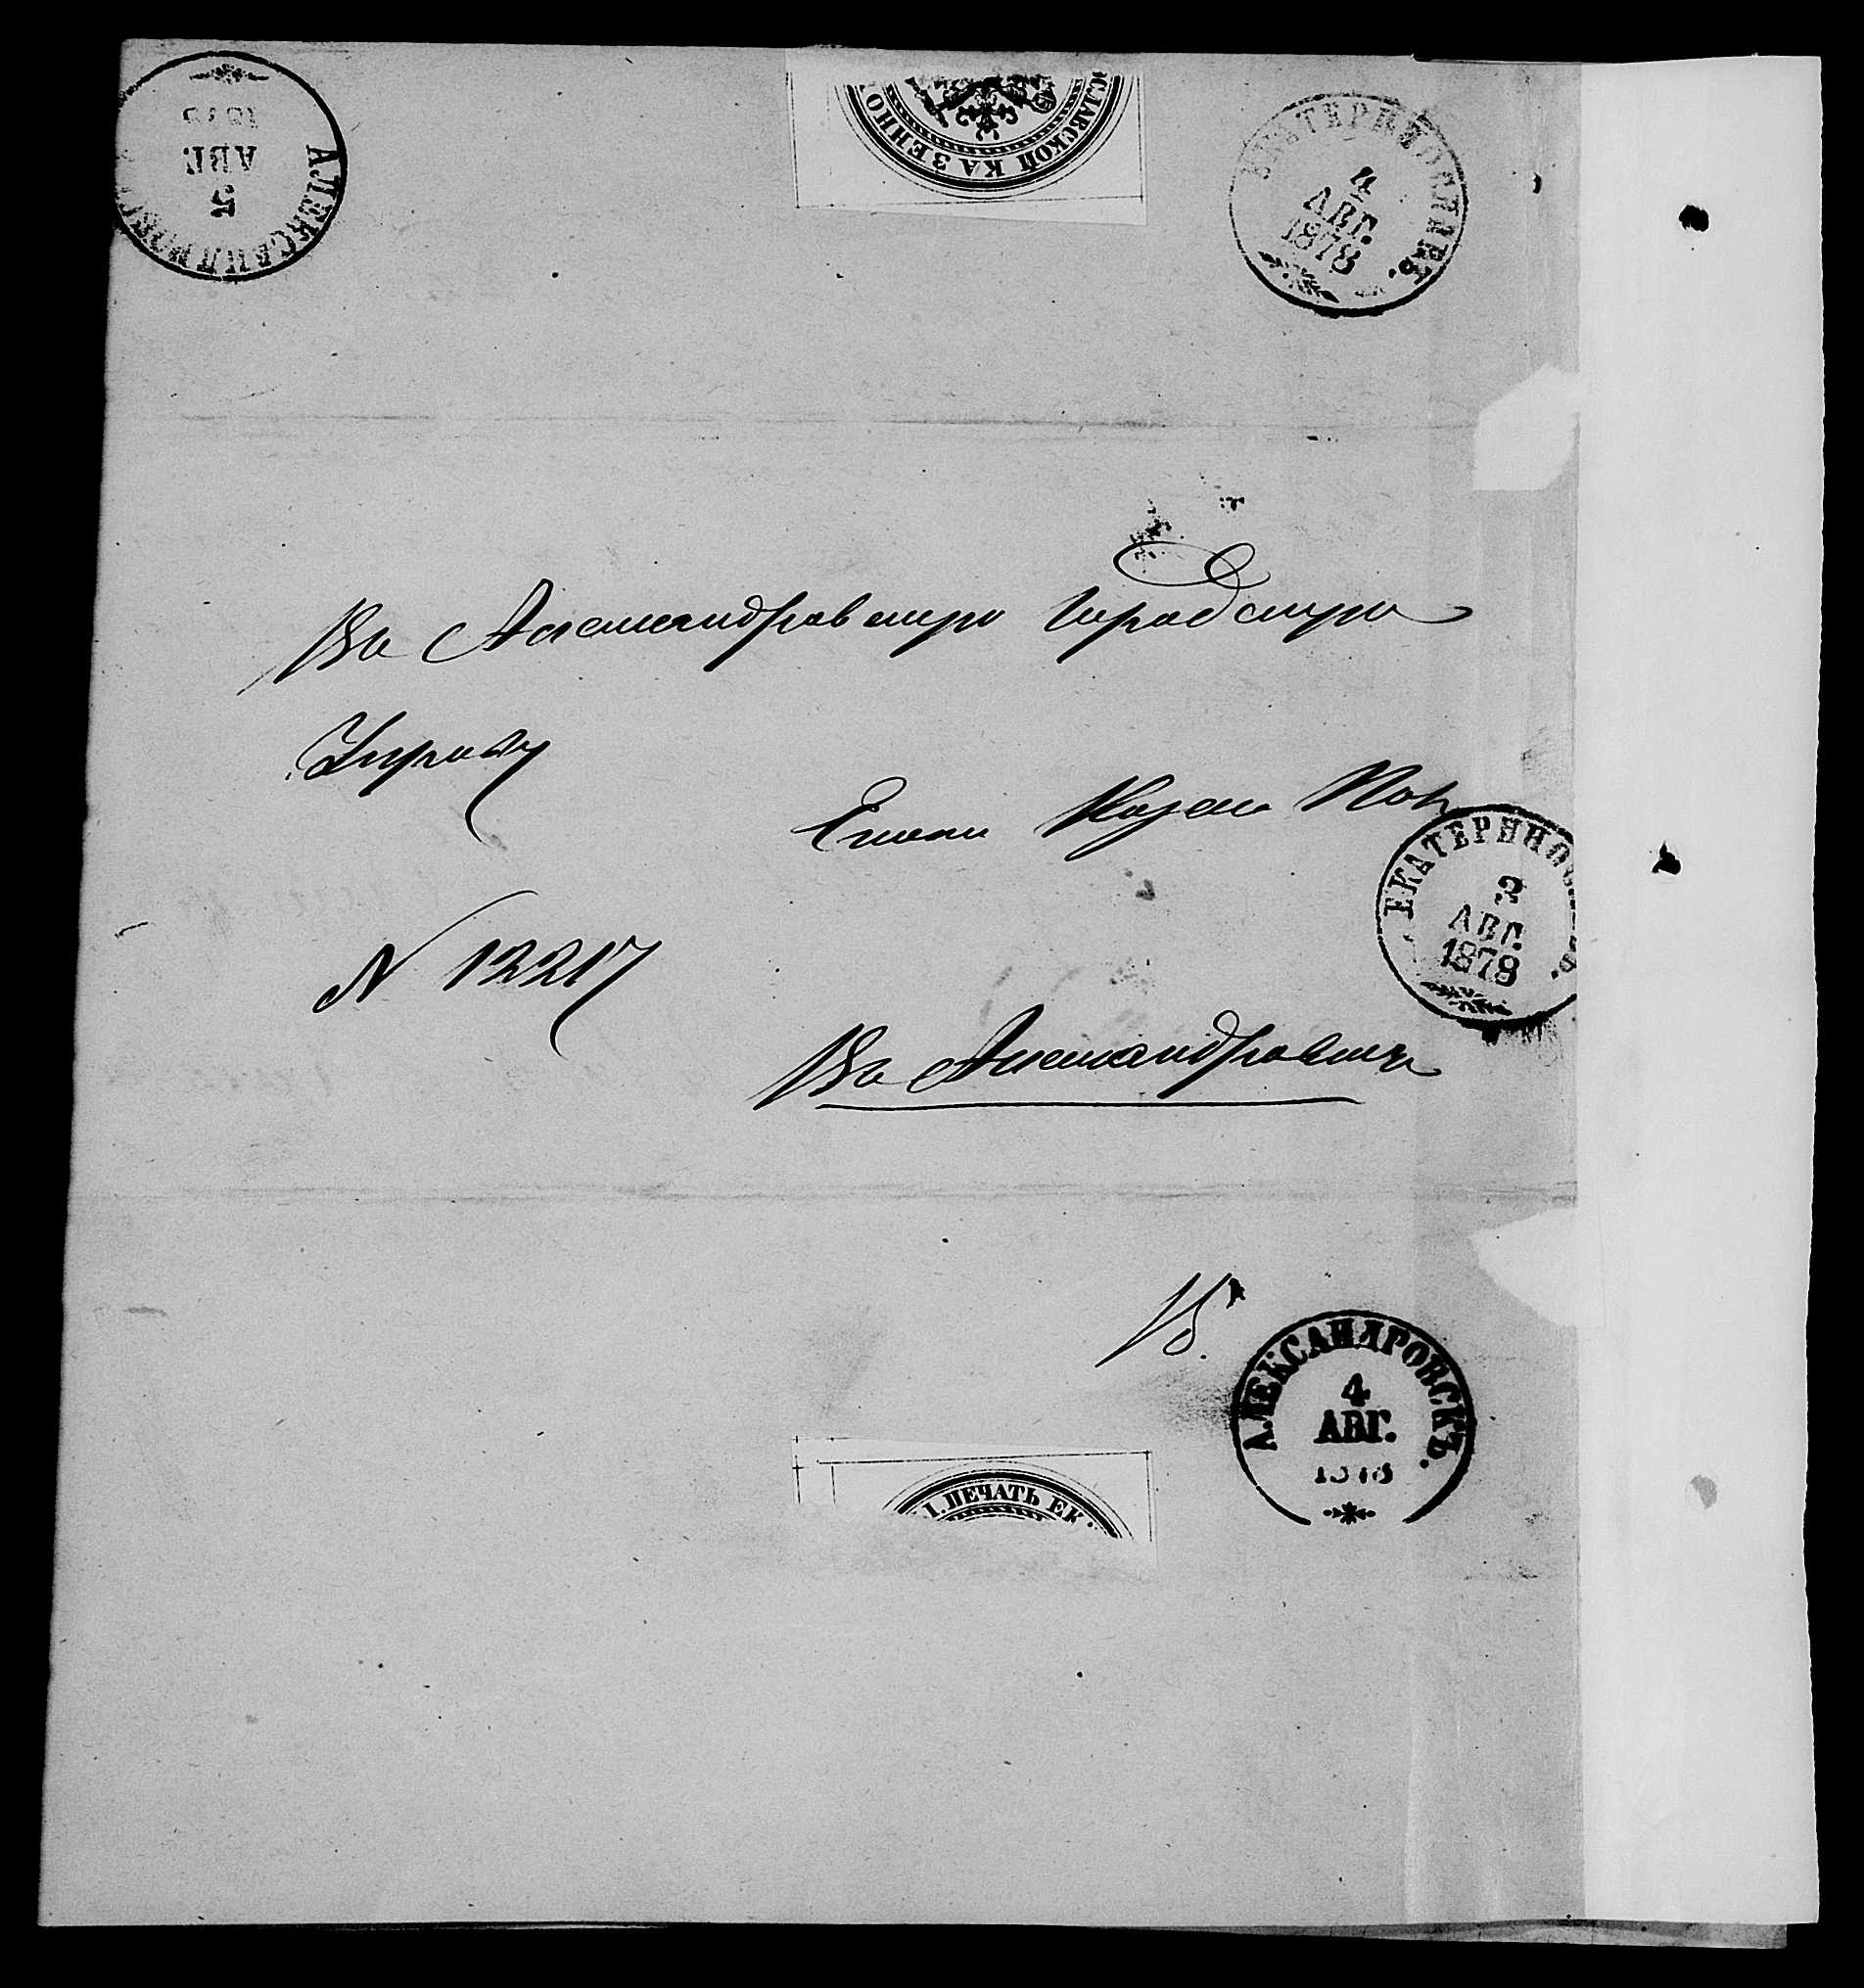 АЛЕКСАНДРОВ
5
АВГ.
1878
ОСЛАВСКОЙ КАЗЕННО
ЕКАТЕРИНОСЛАВЪ.
4
АВГ.
1878
Въ Александровскую Городскую
Управу
Екат. Казен. Пал.
ЕКАТЕРИНОС ВЪ.
3
АВГ.
1878
N 12217
Въ Александровскъ
АЛЕКСАНДРОВСКЪ.
4
АВГ.
1878
ПЕЧАТЬ ЕК